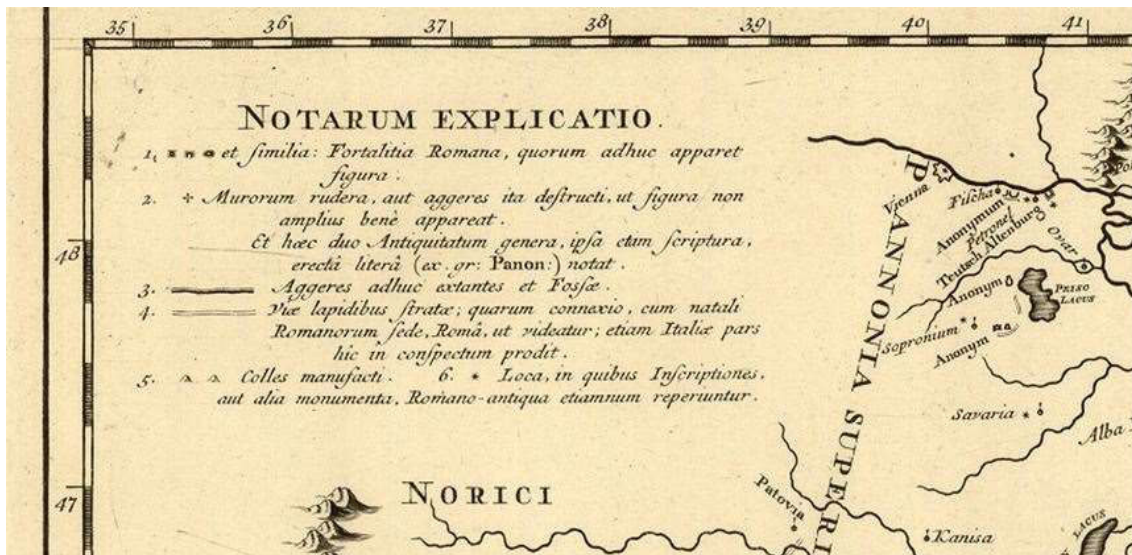 35 36 37 38 39 40 41
NOTARUM EXPLICATIO.
1. et ſimilia: Fortalitia Romana, quorum adhuc apparet
figura.
2. Murorum rudera, aut aggeres ita deſtructi, ut figura non
amplius benè appareat.
Et hæc duo Antiquitatum genera, ipſa etam ſcriptura,
erectâ literâ (ex. gr: Panon:) notat.
3. Aggeres adhuc extantes et Foſſæ.
4. Viæ lapidibus ſtratæ; quarum connexio, cum natali
Romanorum ſede, Româ, ut videatur; etiam Italiæ pars
hic in conſpectum prodit.
5. Colles manufacti. 6. * Loca, in quibus Inſcriptiones,
aut alia monumenta, Romano-antiqua etiamnum reperiuntur.
48
47
NORICI
PANNONIA SUPERI
Vienna
Fiſcha
Anonymum
Petronel
Teutsch Altenburg
Ovar
Anonym
PEISO
LACUS
Sopronium *
Anonym
Savaria *
Alba
Patovia
Kanisa
LACUS